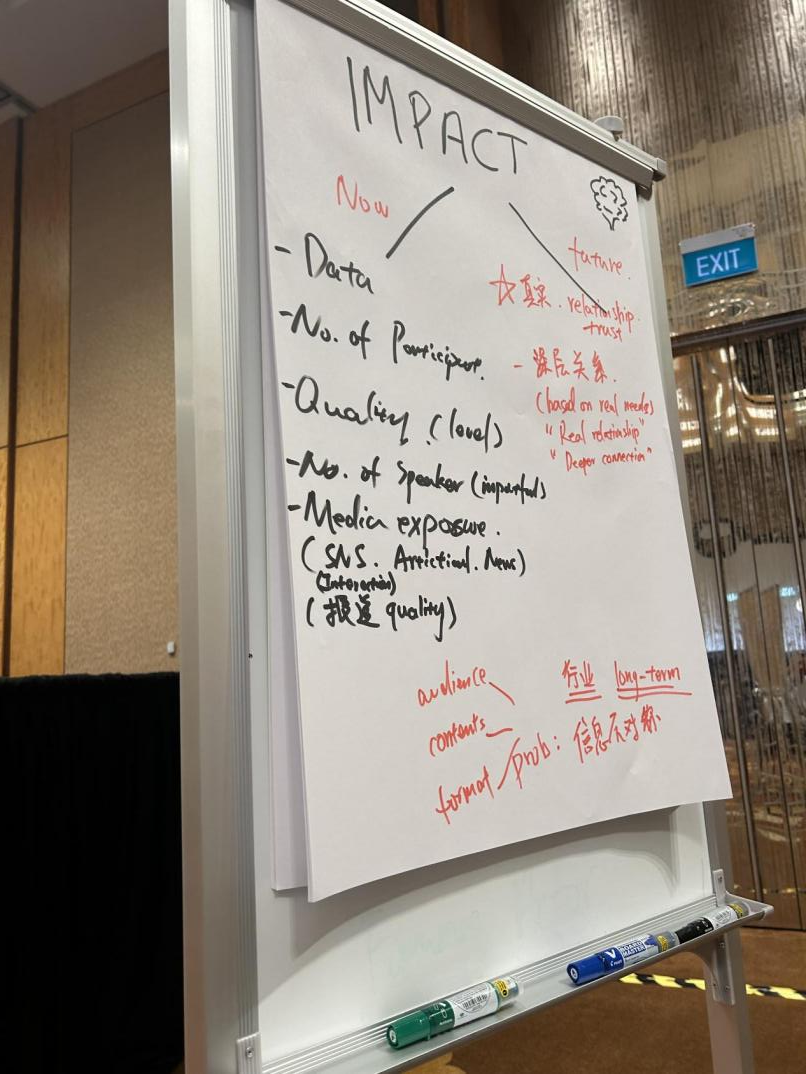 IMPACT
Now
- Data
- No. of Participant.
- Quality. (level)
- No. of Speaker (impactful)
- Media exposure.
(SNS. Artictical. News)
(Interaction)
(报道 quality)
future.
☆ 真实. relationship.
trust
- 深层关系.
(based on real needs)
"Real relationship"
"Deeper connection"
audience
contents
format
行业 long-term
prob: 信息不对称
EXIT
BOARD
MASTER